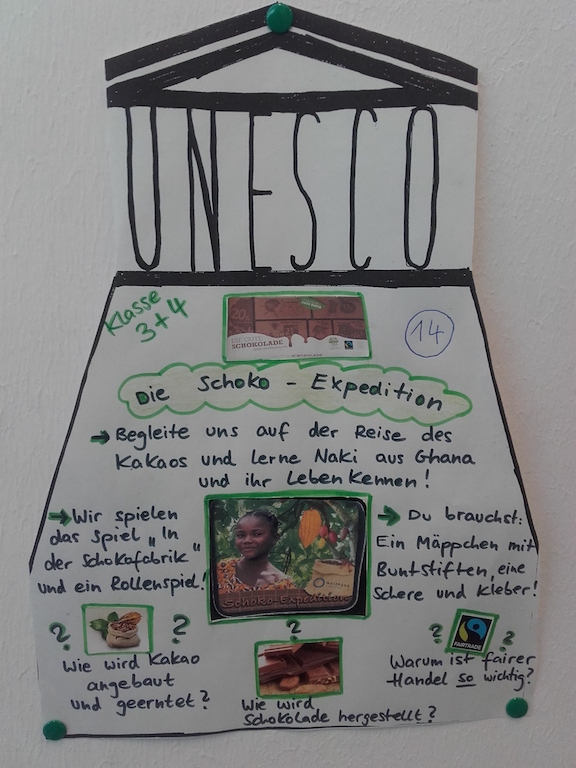 UNESCO
Klasse
3+4
20g
DIE GUTE
SCHOKOLADE
14
Die Schoko - Expedition
→ Begleite uns auf der Reise des
Kakaos und lerne Naki aus Ghana
und ihr Leben kennen!
→ Wir spielen
das Spiel „In
der Schokofabrik"
und ein Rollenspiel!
Schoko-Expedition
→ Du brauchst:
Ein Mäppchen mit
Buntstiften, eine
Schere und Kleber!
? ?
Wie wird Kakao
angebaut
und geerntet?
?
Wie wird
Schokolade hergestellt?
? ?
FAIRTRADE
Warum ist fairer
Handel so wichtig?